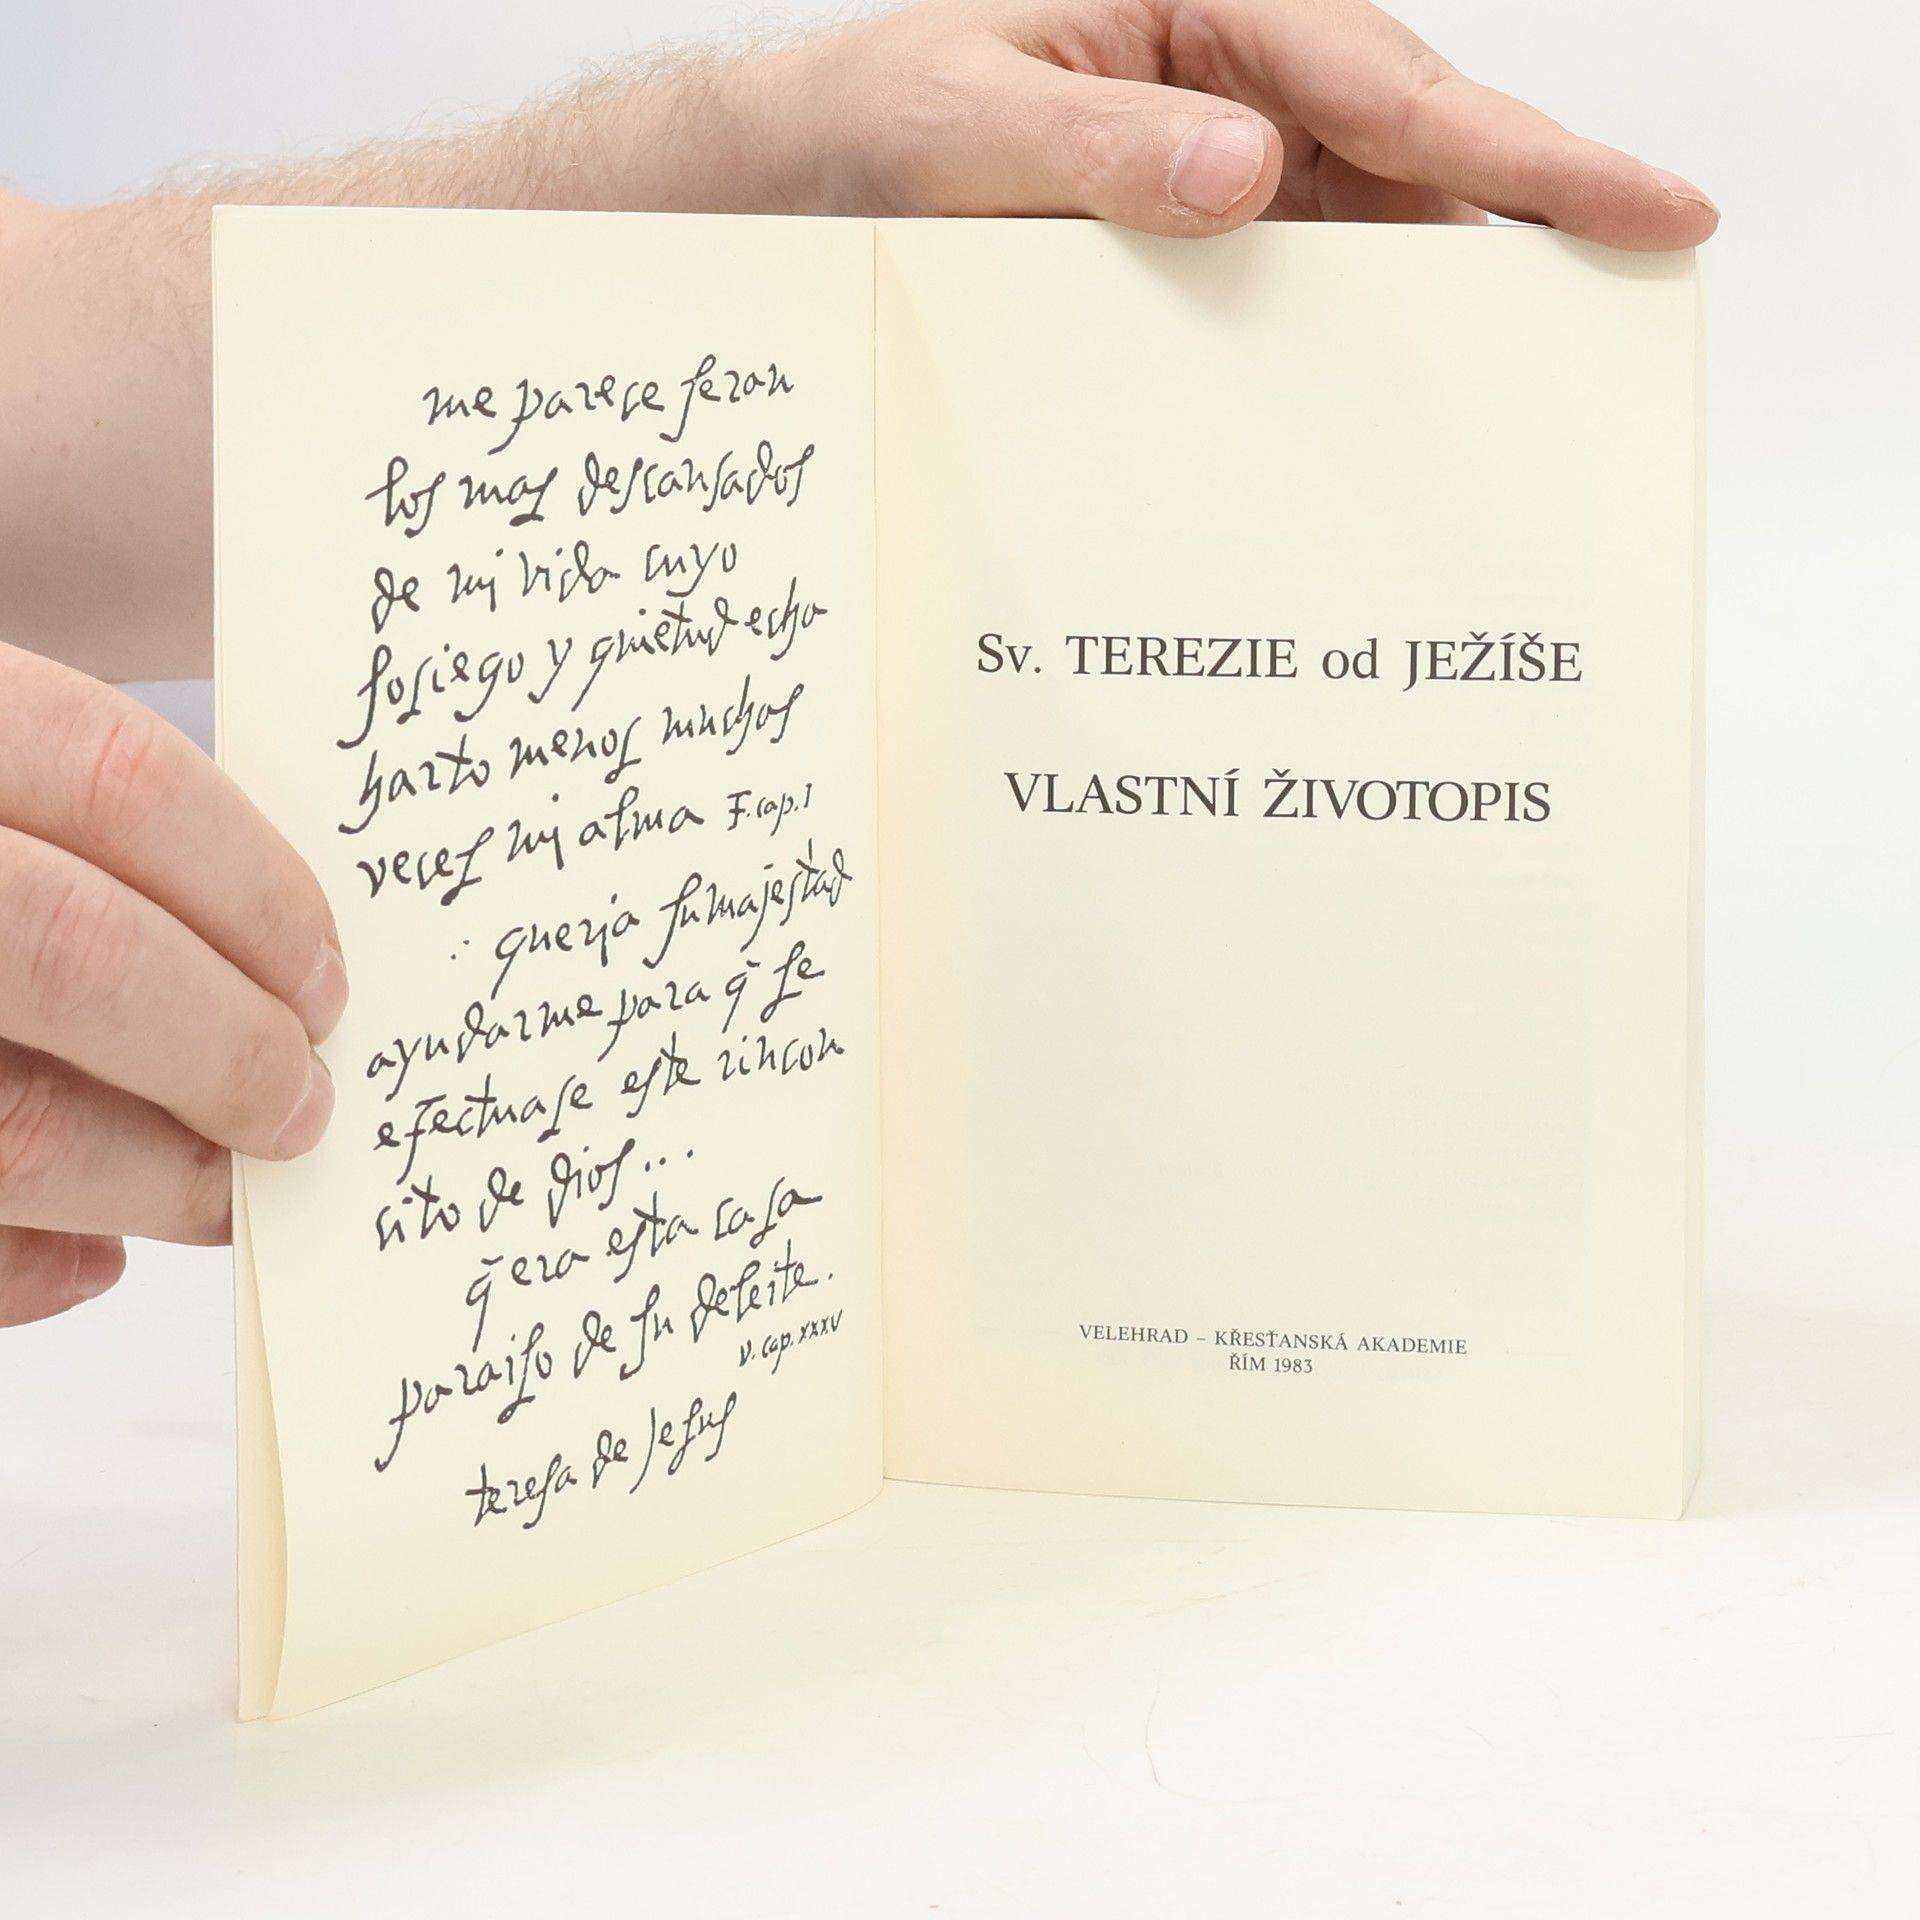 me parece seran
los mas descansados
de mj vida cuyo
sosiego y quietud echa
harto menos muchas
veces mj alma F. cap. I
: querja su majestad
ayudarme para q̄ se
efectuase este rincon
cito de dios...
q̄ era esta casa
paraiso de su deleite.
v. cap. XXXV
teresa de Jesus
Sv. TEREZIE od JEŽÍŠE
VLASTNÍ ŽIVOTOPIS
VELEHRAD – KŘESŤANSKÁ AKADEMIE
ŘÍM 1983